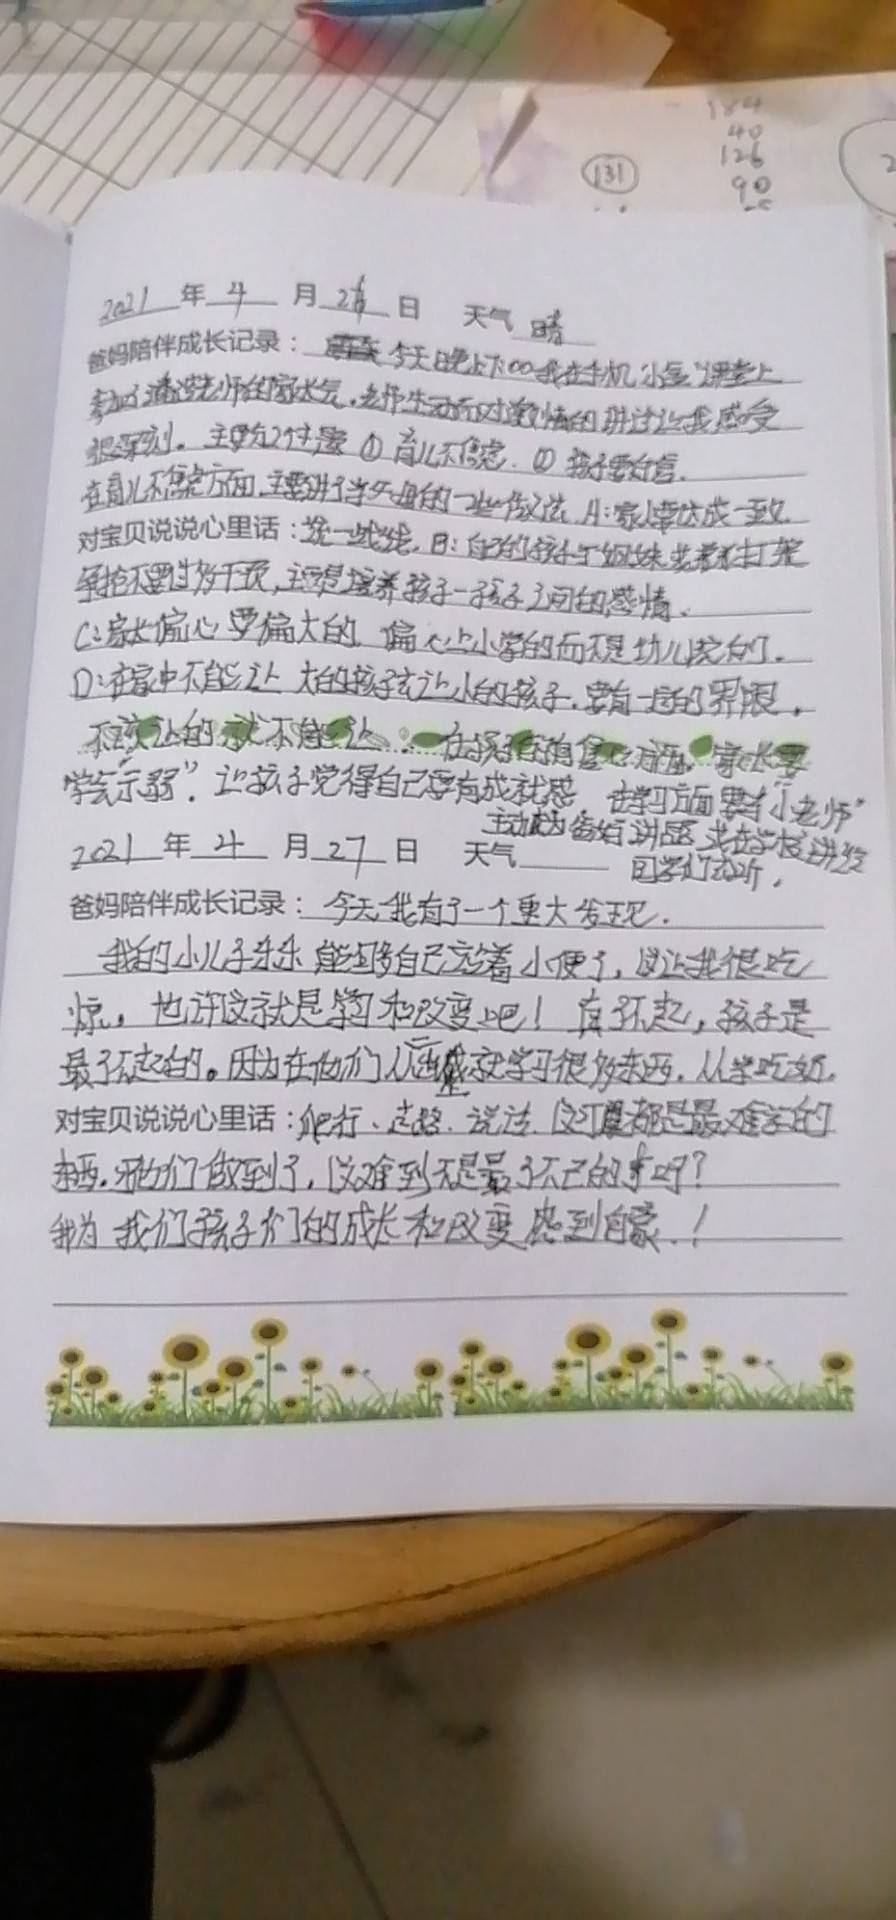 184
40
131
126
90
2021 年 4 月 26 日 天气 晴
爸妈陪伴成长记录： 今天晚上7:00我在手机 课堂上
老师生动而对激情的讲述让我感受
很深刻。主要有2个主题 ① 育儿不焦虑. ② 孩子要自信.
在育儿不焦虑方面.主要讲了学父母的一些做法. A:家人要达成一致.
对宝贝说说心里话：统一战线. B: 自己的孩子 姐妹 打架
争抢不要过多干预,主要是培养孩子–孩子之间的感情、
C:家长偏心 要偏大的. 偏心上小学的而不是幼儿院的.
D:在家中不能让 大的孩子去让小的孩子.要有一定的界限.
不该让的就不能让. 在孩子的自信心方面. 家长要
“学会示弱”. 让孩子觉得自己要有成就感. 在学习方面要有“小老师”
主动 给 讲题 或在学校讲给
同学们去听.
2021 年 4 月 27 日 天气
爸妈陪伴成长记录： 今天我有了一个重大发现.
我的小儿子 能够自己 着小便了, 这让我很吃
惊。也许这就是学习和改变吧! 真了不起, 孩子是
最了不起的。因为在他们 就学习很多东西. 从学吃奶.
对宝贝说说心里话：爬行、走路. 说话. 这可 都是最难学的
东西. 他们做到了, 这难到不是最了不己的事吗?
我为 我们孩子们的成长和改变感到自豪.!